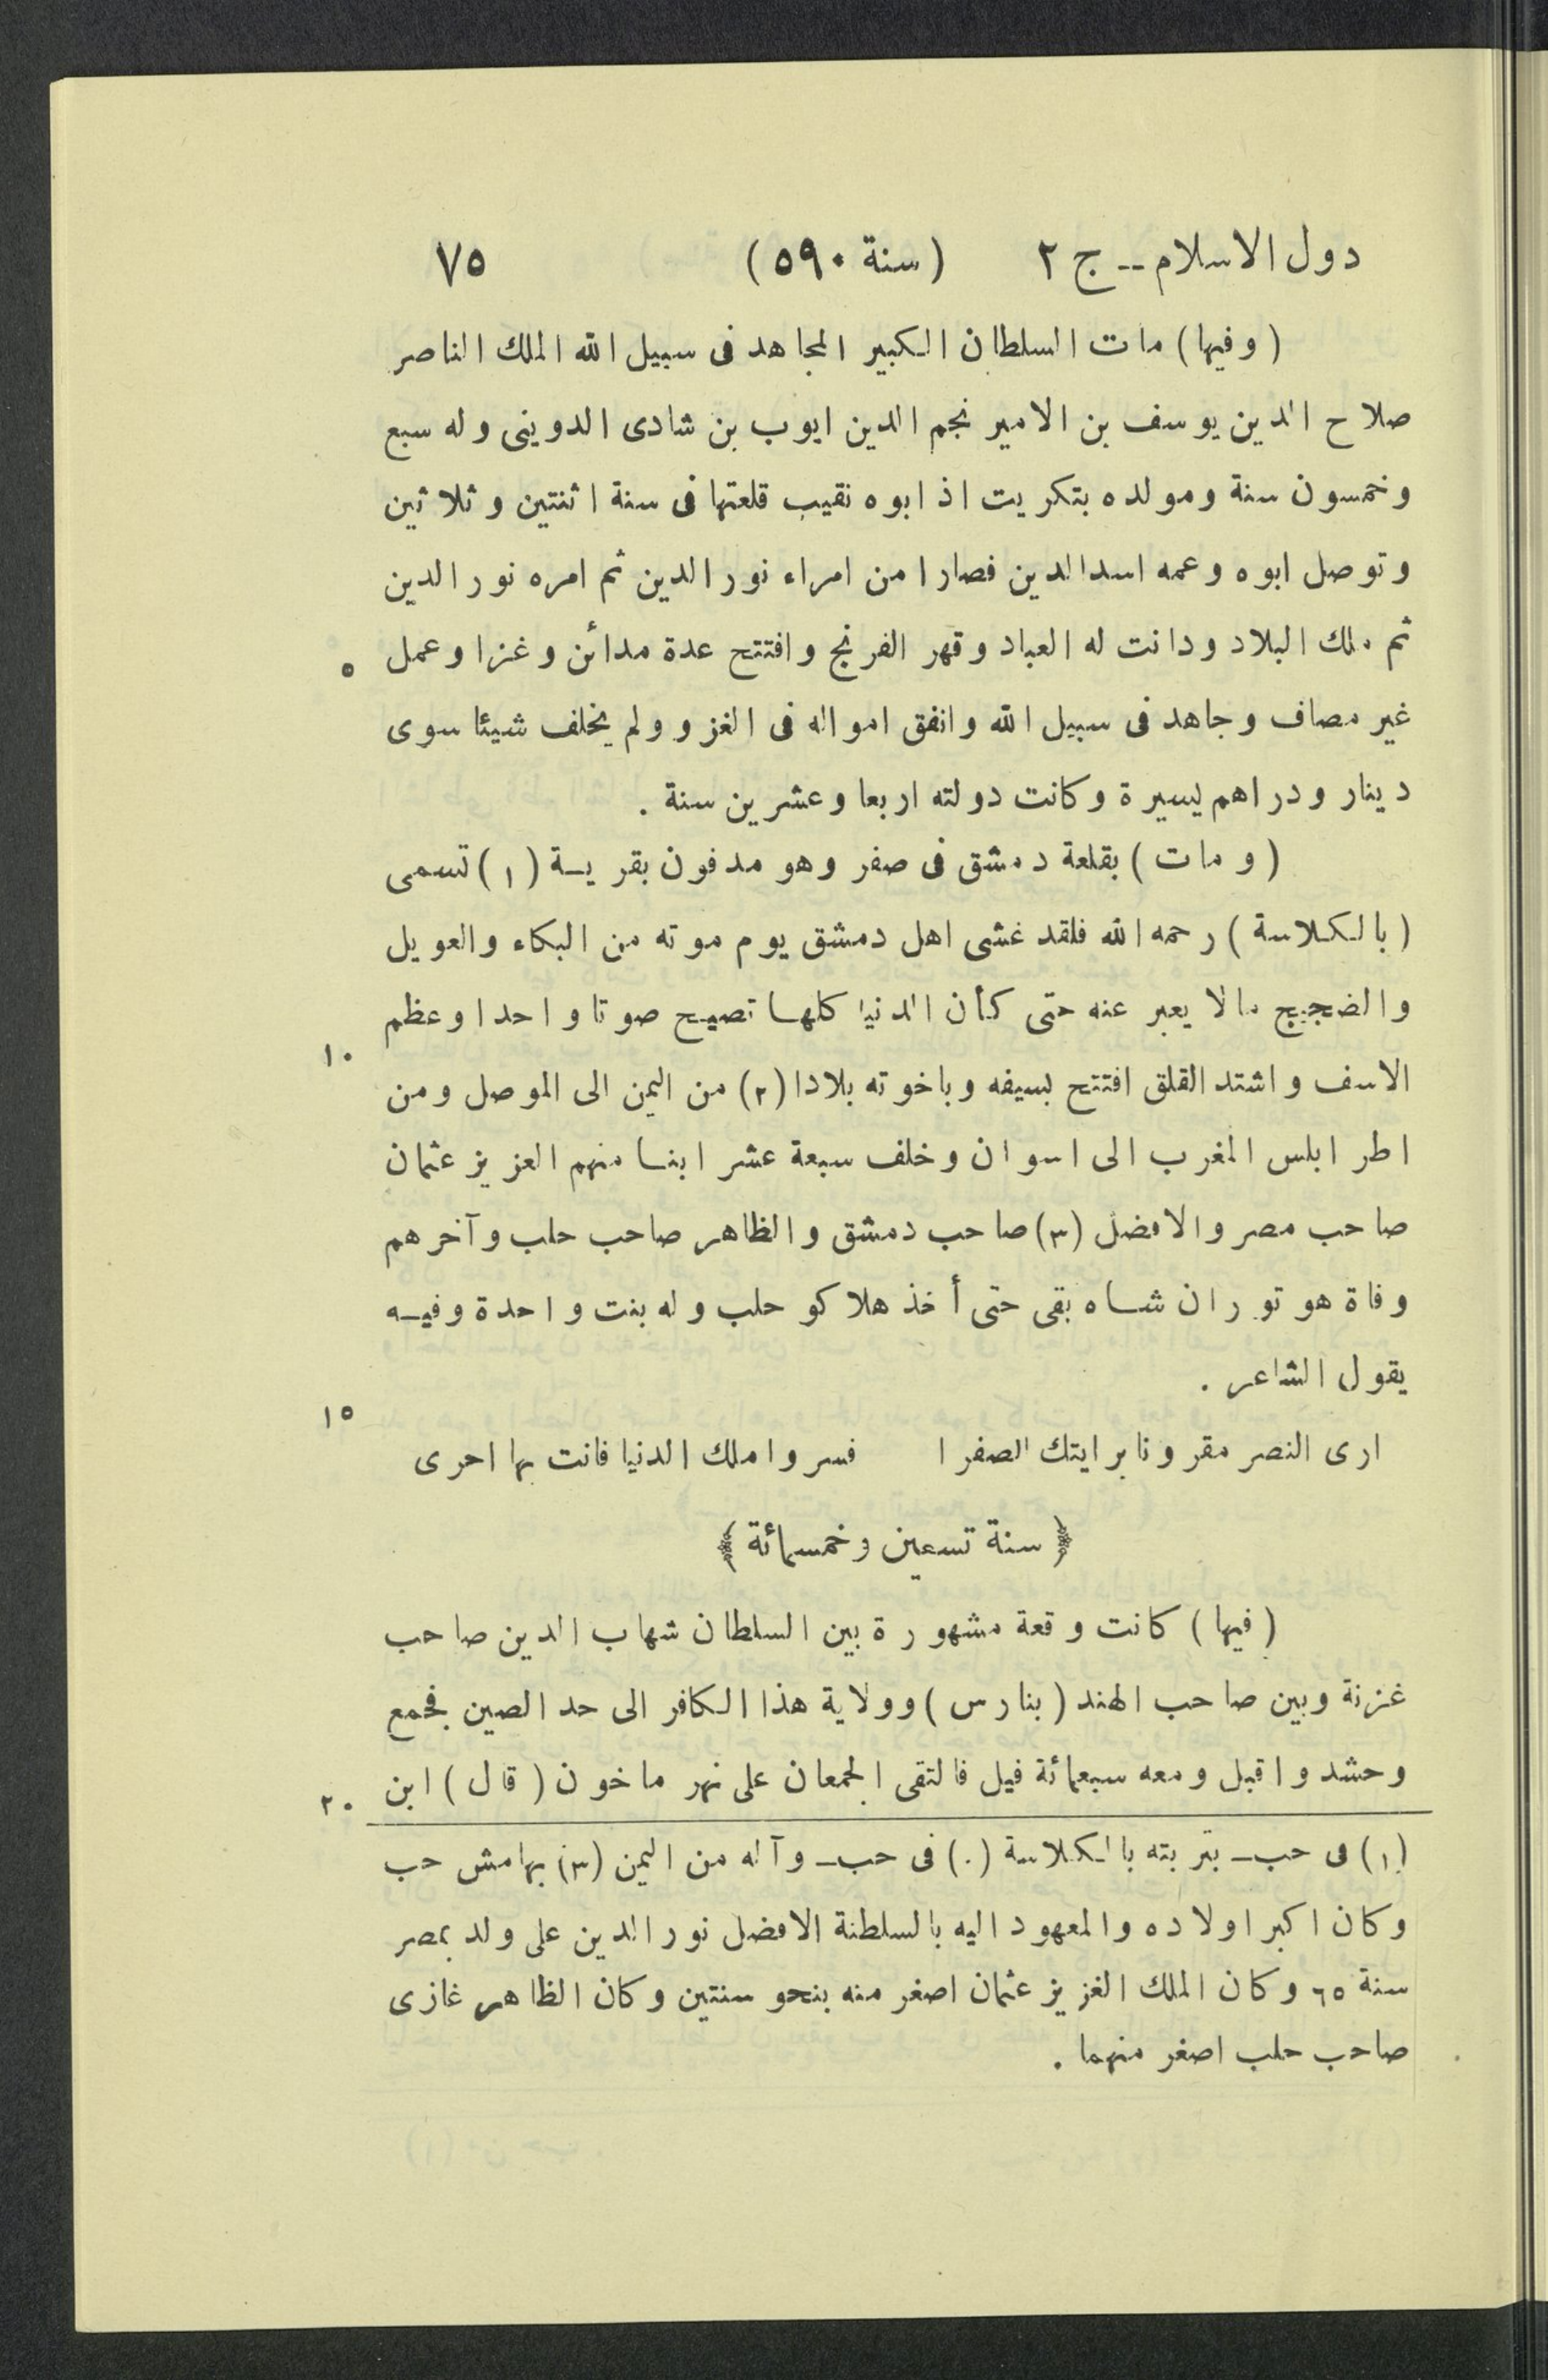 دول الاسلام -- ج ٢ (سنة ٥٩٠) ٧٥
(وفيها) مات السلطان الكبير المجاهد فى سبيل الله الملك الناصر
صلاح الدين يوسف بن الامير نجم الدين ايوب بن شادى الدوينى وله سبع
وخمسون سنة ومولده بتكريت اذ ابوه نقيب قلعتها فى سنة اثنتين وثلاثين
وتوصل ابوه وعمه اسدالدين فصارا من امراء نورالدين ثم امره نورالدين
ثم ملك البلاد ودانت له العباد وقهر الفرنج وافتتح عدة مدائن وغزا وعمل ٥
غير مصاف وجاهد فى سبيل الله وانفق امواله فى الغزو ولم يخلف شيئا سوى
دينار ودراهم يسيرة وكانت دولته اربعا وعشرين سنة .
(ومات) بقلعة دمشق فى صفر وهو مدفون بقريـة (١) تسمى
(بالكلاسة) رحمه الله فلقد غشى اهل دمشق يوم موته من البكاء والعويل
والضجيج مالا يعبر عنه حتى كأن الدنيا كلها تصيح صوتا واحدا وعظم
١٠
الاسف واشتد القلق افتتح بسيفه وباخوته بلادا (٢) من اليمن الى الموصل ومن
اطرابلس المغرب الى اسوان وخلف سبعة عشر ابنا منهم العزيز عثمان
صاحب مصر والافضل (٣) صاحب دمشق والظاهر صاحب حلب وآخرهم
وفاة هو توران شاه بقى حتى أخذ هلاكو حلب وله بنت واحدة وفيـه
يقول الشاعر .
١٥
ارى النصر مقرونا برايتك الصفرا فسر واملك الدنيا فانت بها احرى
﴿ سنة تسعين وخمسمائة ﴾
(فيها) كانت وقعة مشهورة بين السلطان شهاب الدين صاحب
غزنة وبين صاحب الهند (بنارس) وولاية هذا الكافر الى حد الصين فجمع
وحشد واقبل ومعه سبعمائة فيل فالتقى الجمعان على نهر ماخون (قال) ابن ٢٠
(١) فى حب ـ بتربته بالكلاسة (٠) فى حب ـ وآله من اليمن (٣) بهامش حب
وكان اكبر اولاده والمعهود اليه بالسلطنة الافضل نورالدين على ولد بمصر
سنة ٦٥ وكان الملك الغزيز عثمان اصغر منه بنحو سنتين وكان الظاهر غازى
صاحب حلب اصغر منهما .